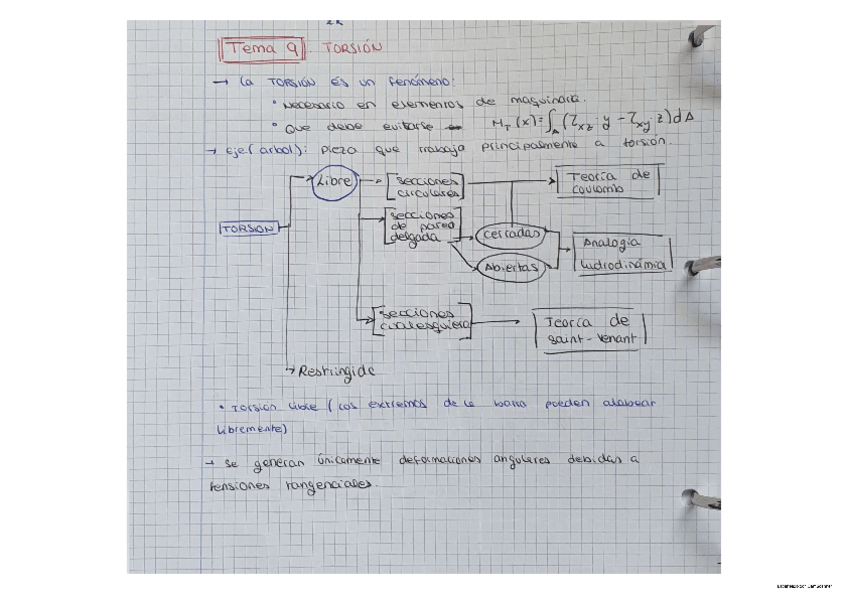 Tema 9. TORSIÓN
→ La TORSIÓN es un fenómeno:
• Necesario en elementos de maquinaria.
• Que debe evitarse
M_T (x) = ∫_A (τ_xz · y - τ_xy · z) dA
→ Eje (árbol): pieza que trabaja principalmente a torsión.
TORSION
Libre
secciones
circulares
Teoría de
coulomb
secciones
de pared
delgada
cerradas
Abiertas
Analogía
hidrodinámia
secciones
cualesquiera
Teoría de
saint-venant
→ Restringida
• Torsión Libre (Los extremos de la barra pueden alabear
libremente)
→ se generan únicamente deformaciones angulares debidas a
tensiones tangenciales.